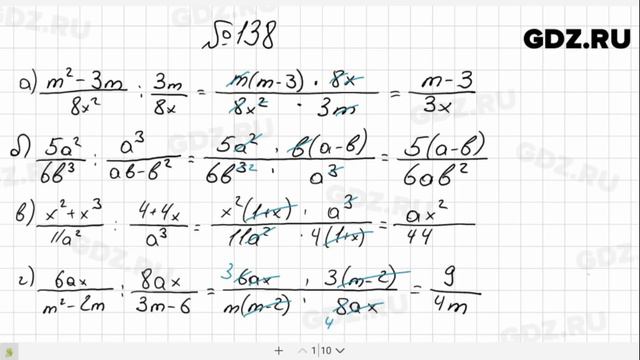 №138
GDZ.RU
а) (m² - 3m)/(8x²) : (3m)/(8x) = (m(m-3) · 8x)/(8x² · 3m) = (m-3)/(3x)
б) (5a²)/(6b³) : (a³)/(ab-b²) = (5a² · b(a-b))/(6b³ ² · a³) = (5(a-b))/(6ab²)
в) (x²+x³)/(11a²) : (4+4x)/(a³) = (x²(1+x) · a³)/(11a² · 4(1+x)) = (ax²)/(44)
г) (6ax)/(m²-2m) : (8ax)/(3m-6) = (3 6ax · 3(m-2))/(m(m-2) · 8ax 4) = (9)/(4m)
1 | 10